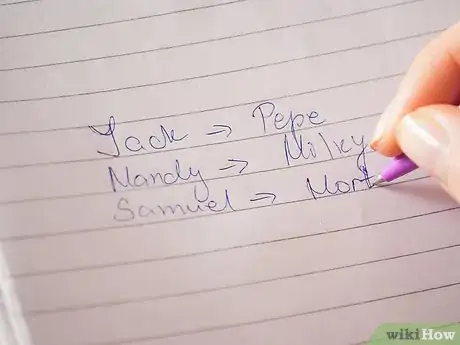 Jack → Pepe
Mandy → Milky
Samuel → Mort
wikiHow